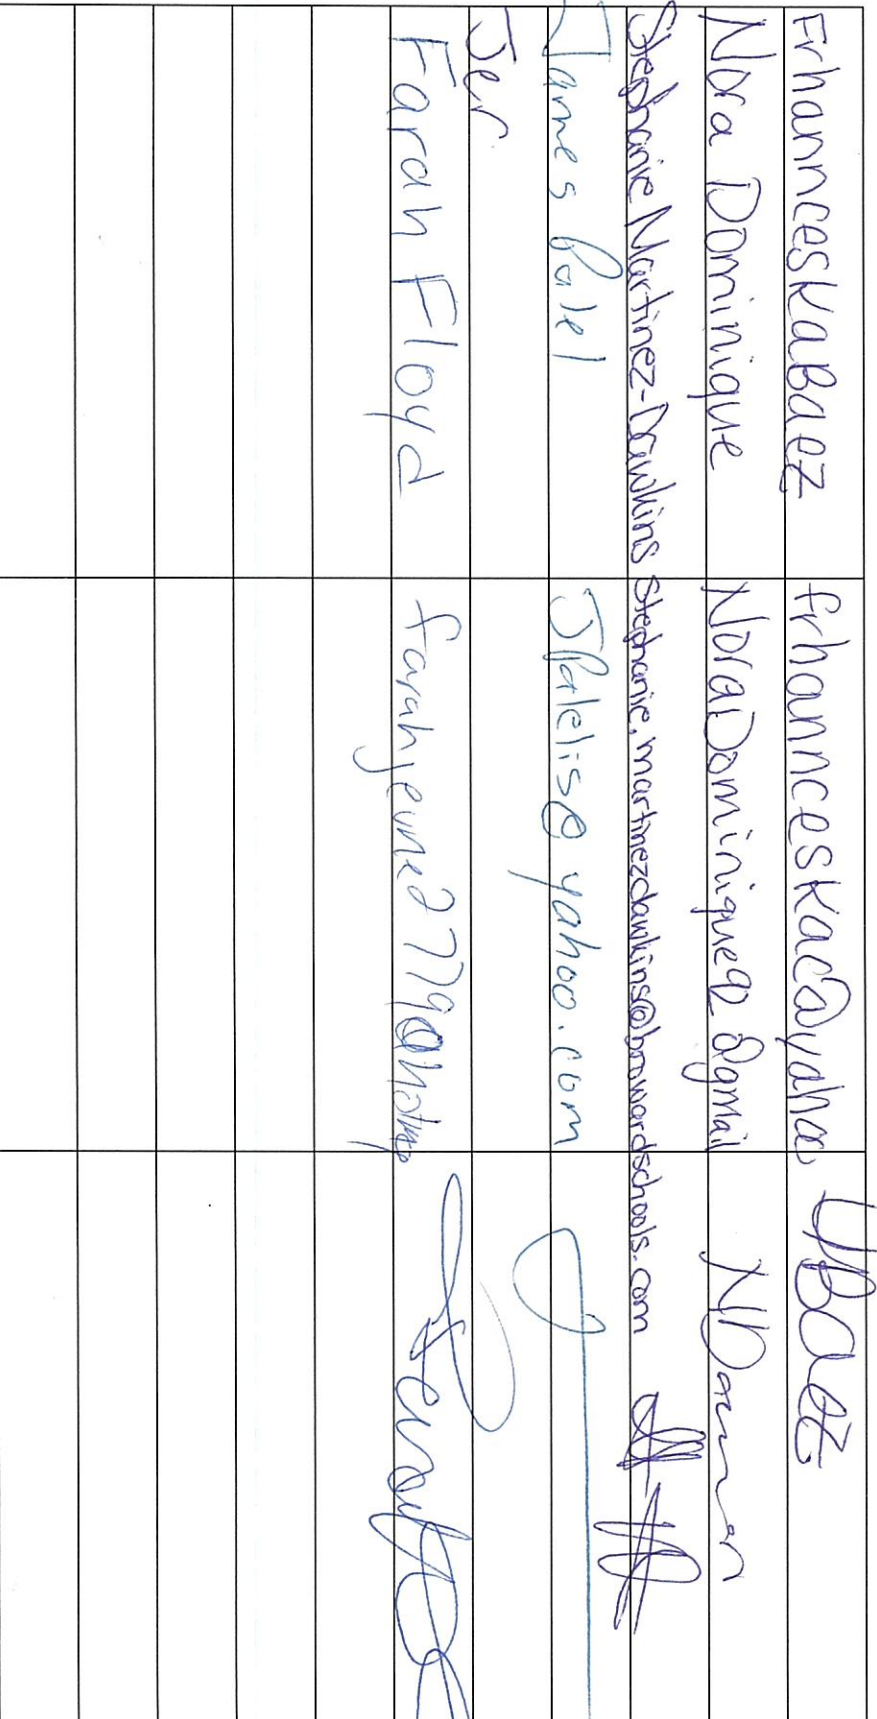 Frhannceska Baez frhannceskac@yahoo UBaez
Nora Dominique NoraDominique92@gmail
Stephanie Martinez-Dawkins Stephanie.martinezdawkins@browardschools.com
James Palel JPalelis@yahoo.com
Jer
Farah Floyd farahjeune2779@hotmail